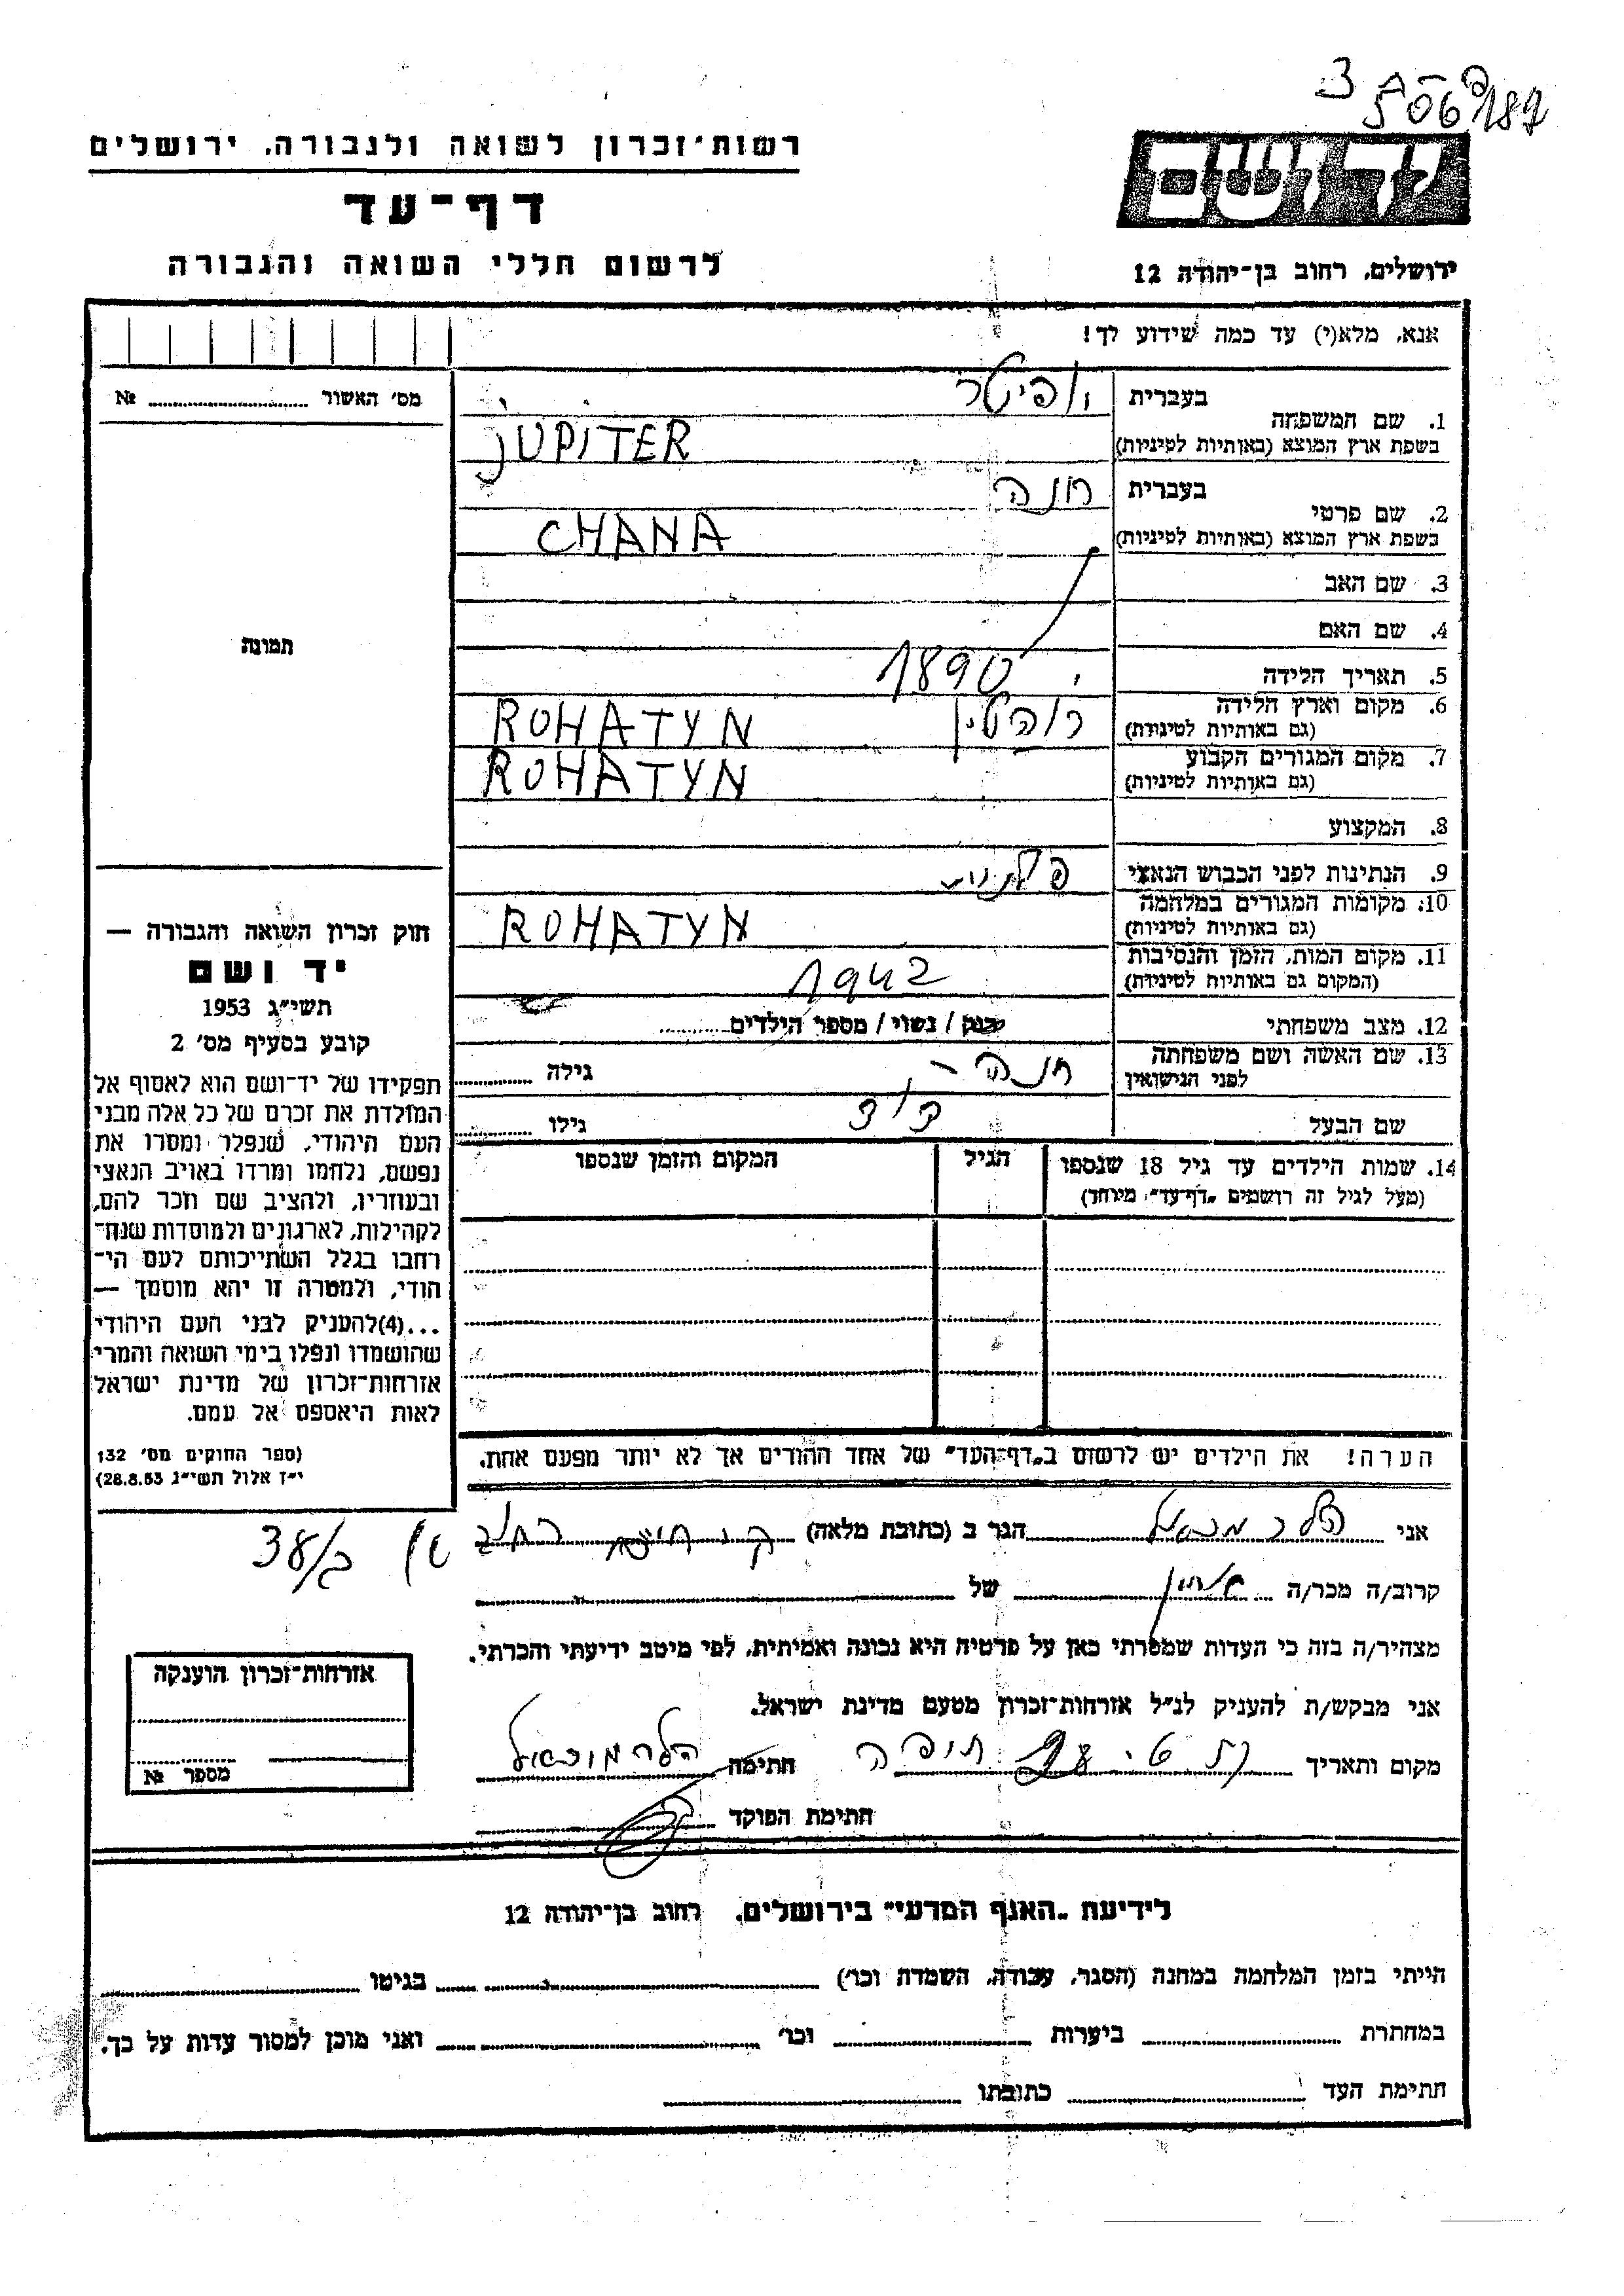 3
506/187
רשות־זכרון לשואה ולגבורה, ירושלים
דף־עד
לרשום חללי השואה והגבורה
יד ושם
ירושלים, רחוב בן־יהודה 12
אנא, מלא(י) עד כמה שידוע לך!
מס׳ האשור ........ №
1. שם המשפחה
בעברית
יופיטר
בשפת ארץ המוצא (באותיות לטיניות)
JUPITER
2. שם פרטי
בעברית
חנה
בשפת ארץ המוצא (באותיות לטיניות)
CHANA
3. שם האב
4. שם האם
5. תאריך הלידה
1890
6. מקום וארץ הלידה
(גם באותיות לטיניות)
רוהטין ROHATYN
7. מקום המגורים הקבוע
(גם באותיות לטיניות)
ROHATYN
8. המקצוע
9. הנתינות לפני הכבוש הנאצי
פולנית
10. מקומות המגורים במלחמה
(גם באותיות לטיניות)
ROHATYN
11. מקום המות, הזמן והנסיבות
(המקום גם באותיות לטיניות)
1942
12. מצב משפחתי
רווק / נשוי / מספר הילדים ........
13. שם האשה ושם משפחתה
לפני הנישואין
חנה - גילה ........
שם הבעל
דוד גילו ........
14. שמות הילדים עד גיל 18 שנספו
(מעל לגיל זה רושמים „דף־עד״ מיוחד)
הגיל
המקום והזמן שנספו
תמונה
חוק זכרון השואה והגבורה —
יד ושם
תשי״ג 1953
קובע בסעיף מס׳ 2
תפקידו של יד־ושם הוא לאסוף אל
המולדת את זכרם של כל אלה מבני
העם היהודי, שנפלו ומסרו את
נפשם, נלחמו ומרדו באויב הנאצי
ובעוזריו, ולהציב שם וזכר להם,
לקהילות, לארגונים ולמוסדות שנח־
רבו בגלל השתייכותם לעם הי־
הודי, ולמטרה זו יהא מוסמך —
...(4)להעניק לבני העם היהודי
שהושמדו ונפלו בימי השואה והמרי
אזרחות־זכרון של מדינת ישראל
לאות היאספם אל עמם.
(ספר החוקים מס׳ 132
י״ז אלול תשי״ג 28.8.53)
הערה! את הילדים יש לרשום ב„דף־העד״ של אחד ההורים אך לא יותר מפעם אחת.
אני הלר מכאל הגר ב (כתובת מלאה) ק. חיים רחוב
38/ב
קרוב/ה מכר/ה ........ של ........
מצהיר/ה בזה כי העדות שמסרתי כאן על פרטיה היא נכונה ואמיתית, לפי מיטב ידיעתי והכרתי.
אני מבקש/ת להעניק לנ״ל אזרחות־זכרון מטעם מדינת ישראל.
מקום ותאריך ........ חתימה הלר מיכאל
חתימת הפוקד ........
אזרחות־זכרון הוענקה
מספר №
לידיעת „האגף המדעי״ בירושלים, רחוב בן־יהודה 12
הייתי בזמן המלחמה במחנה (הסגר, עבודה, השמדה וכו׳) ........ בגיטו ........
במחתרת ........ ביערות ........ וכו׳ ........ ואני מוכן למסור עדות על כך.
חתימת העד ........ כתובתו ........